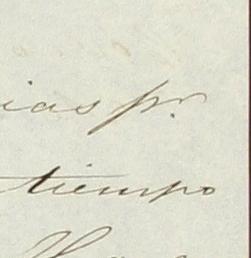 ias pr.
tiempo